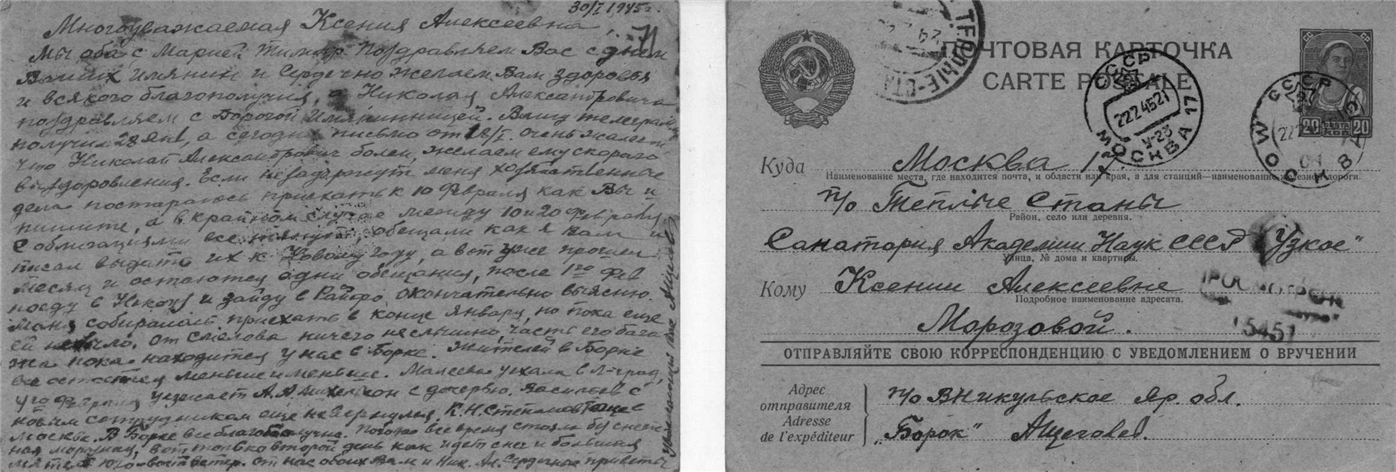 30/I 1945г.
Многоуважаемая Ксения Алексеевна
Мы оба с Марией Тимоф. Поздравляем Вас с днем
Ваших имянин и сердечно желаем Вам здоровья
и всякого благополучия, а Николая Александровича
поздравляем с дорогой имянинницей. Вашу телеграмму
получил 28 янв, а сегодня письмо от 18/I. очень жалеем
что Николай Александрович болен, желаем ему скорого
выздоровления. Если не задержут меня хозяйственные
дела постараюсь приехать к 10 февраля как Вы и
пишите, а в крайнем случае между 10 и 20 февраля
С облигациями все тянут обещали как я Вам и
писал выдать их к Новому году, а вот уже прошел
месяц и остаются одни обещания, после 1го фев
поеду в Некоуз и зайду в Райфо, окончательно выясню.
Маня собиралась приехать в конце января, но пока еще
ее не было, от Смелова ничего не слышно часть его бага
жа пока находится у нас в Борке. Жителей в Борке
все остается меньше и меньше. Малеева уехала в Л-град,
февраля уезжает с дочерью. Васильев с
новым сотрудником еще не вернулся, К.Н. Степанов тоже в
Москве. В Борке все благополучно. Погода все время стояла бесснеж
ная морозная, вот только второй день как идет снег и большая
метель ветер. от нас обоих Вам и Ник. Ал. Сердечный привет
уважающий Вас
ПОЧТОВАЯ КАРТОЧКА
CARTE POSTALE
20 КОП 20
ТЕПЛЫЕ-СТАН
СССР
22 2 45 21
МОСКВА 17
MOSCOU
СССР
МОСКВА
Куда Москва 17
Наименование места, где находится почта, и области или края, а для станций—наименование железной дороги.
п/о Теплые Станы
Район, село или деревня.
Санатория Академии Наук СССР „Узкое"
Улица, № дома и квартиры.
Кому Ксении Алексеевне
Подробное наименование адресата.
Морозовой.
ПРОСМОТРЕНО
15451
ОТПРАВЛЯЙТЕ СВОЮ КОРРЕСПОНДЕНЦИЮ С УВЕДОМЛЕНИЕМ О ВРУЧЕНИИ
Адрес отправителя
Adresse de l'expéditeur
п/о Вникульское Яр. обл.
„Борок" Ащеголев.